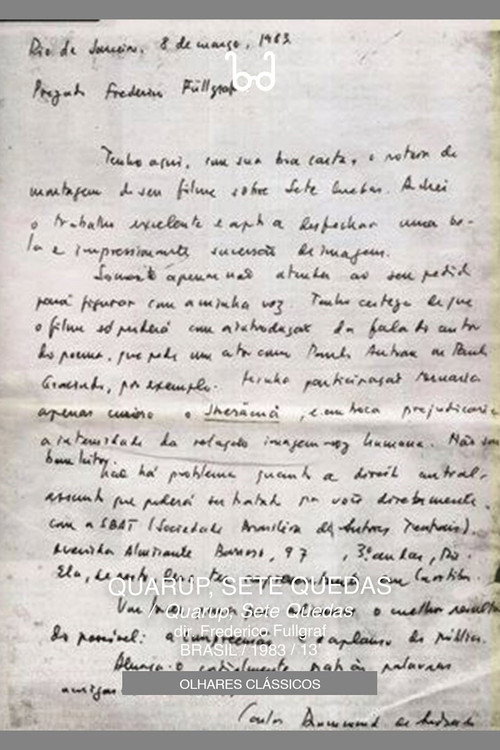 Rio de Janeiro, 8 de março, 1983
bd
Prezado Frederico Füllgraf
Tenho aqui, com sua boa carta, o roteiro de
montagem de seu filme sobre Sete Quedas. Achei
o trabalho excelente e apto a despachar uma be-
la e impressionante sucessão de imagem.
apenas não atender ao seu pedido
para figurar com a minha voz. Tenho certeza de que
o filme só poderá com a introdução da fala do autor
do poema, que pede um ator como Paulo Autran ou Paulo
Gracindo, por exemplo. Minha participação
apenas o e em troca prejudicaria
a intensidade da relação imagem-voz humana. Não sou
bom leitor.
Não há problema quanto a direito autoral,
assunto que poderá ser tratado por você diretamente
com a SBAT (Sociedade Brasileira de Autores Teatrais).
Avenida Almirante Barroso, 97, 3º andar, Rio.
Ela, de resto, em Curitiba.
QUARUP, SETE QUEDAS
/ Quarup, Sete Quedas
o melhor resultado
dir. Frederico Fullgraf
do possível: a e o aplauso do público.
BRASIL / 1983 / 13'
cordialmente palavras
amigas
OLHARES CLÁSSICOS
Carlos Drummond de Andrade